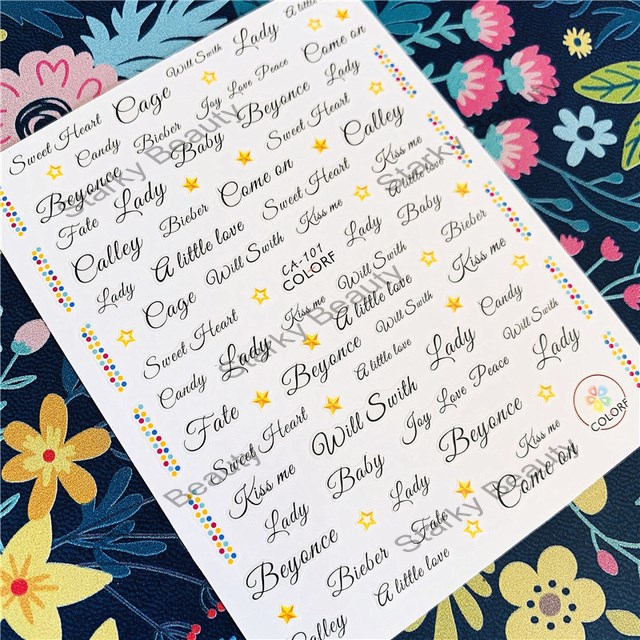 A little
Lady
Will Swith
Come on
Cage
Joy Love Peace
Lady
Sweet Heart
Candy
Bieber
Baby
Beyonce
Sweet Heart
Calley
Beyonce
Lady
Come on
Kiss me
A little love
Fate
Bieber
Sweet Heart
Calley
A little love
Kiss me
Baby
Lady
Will Swith
CA-101
COLORF
Lady
Bieber
Cage
Kiss me
Will Swith
Kiss me
Sweet Heart
A little love
Candy
Lady
Beyonce
Will Swith
Candy
A little love
Lady
Will Swith
Fate
Will Swith
Joy Love Peace
Lady
Sweet Heart
Beyonce
COLORF
Kiss me
Baby
Kiss me
Lady
Lady
Come on
Beyonce
Bieber
Fate
A little love
Calley
Starky Beauty
Starky Beauty
Starky Beauty
Starky Beauty
Beauty